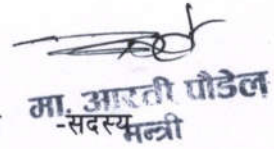 मा. आरती पौडेल
-सदस्य
मन्त्री